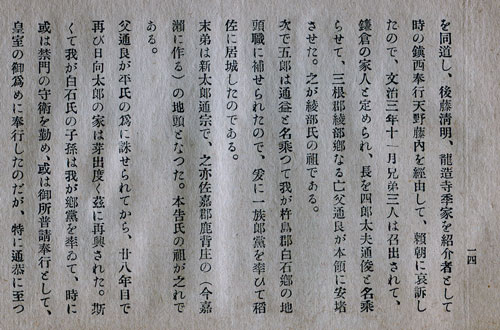 一四
を同道し、後藤淸明、龍造寺季家を紹介者として
時の鎭西奉行天野藤内を經由して、賴朝に哀訴し
たので、文治三年十一月兄弟三人は召出されて、
鎌倉の家人と定められ、長を四郎太夫通俊と名乘
らせて、三根郡綾部鄕なる亡父通良が本領に安堵
させた。之が綾部氏の祖である。
次で五郎は通益と名乘つて我が杵島郡白石鄕の地
頭職に補せられたので、爰に一族郎黨を率ひて稻
佐に居城したのである。
末弟は新太郎通宗で、之亦佐嘉郡鹿背庄の(今嘉
瀨に作る)の地頭となつた。本吿氏の祖が之れで
ある。
父通良が平氏の爲に誅せられてから、廿八年目で
再び日向太郎の家は芽出度く玆に再興された。斯
くて我が白石氏の子孫は我が鄕黨を率ゐて、時に
或は禁門の守衛を勤め、或は御所普請奉行として、
皇室の御爲めに奉行したのだが、特に通恭に至つ